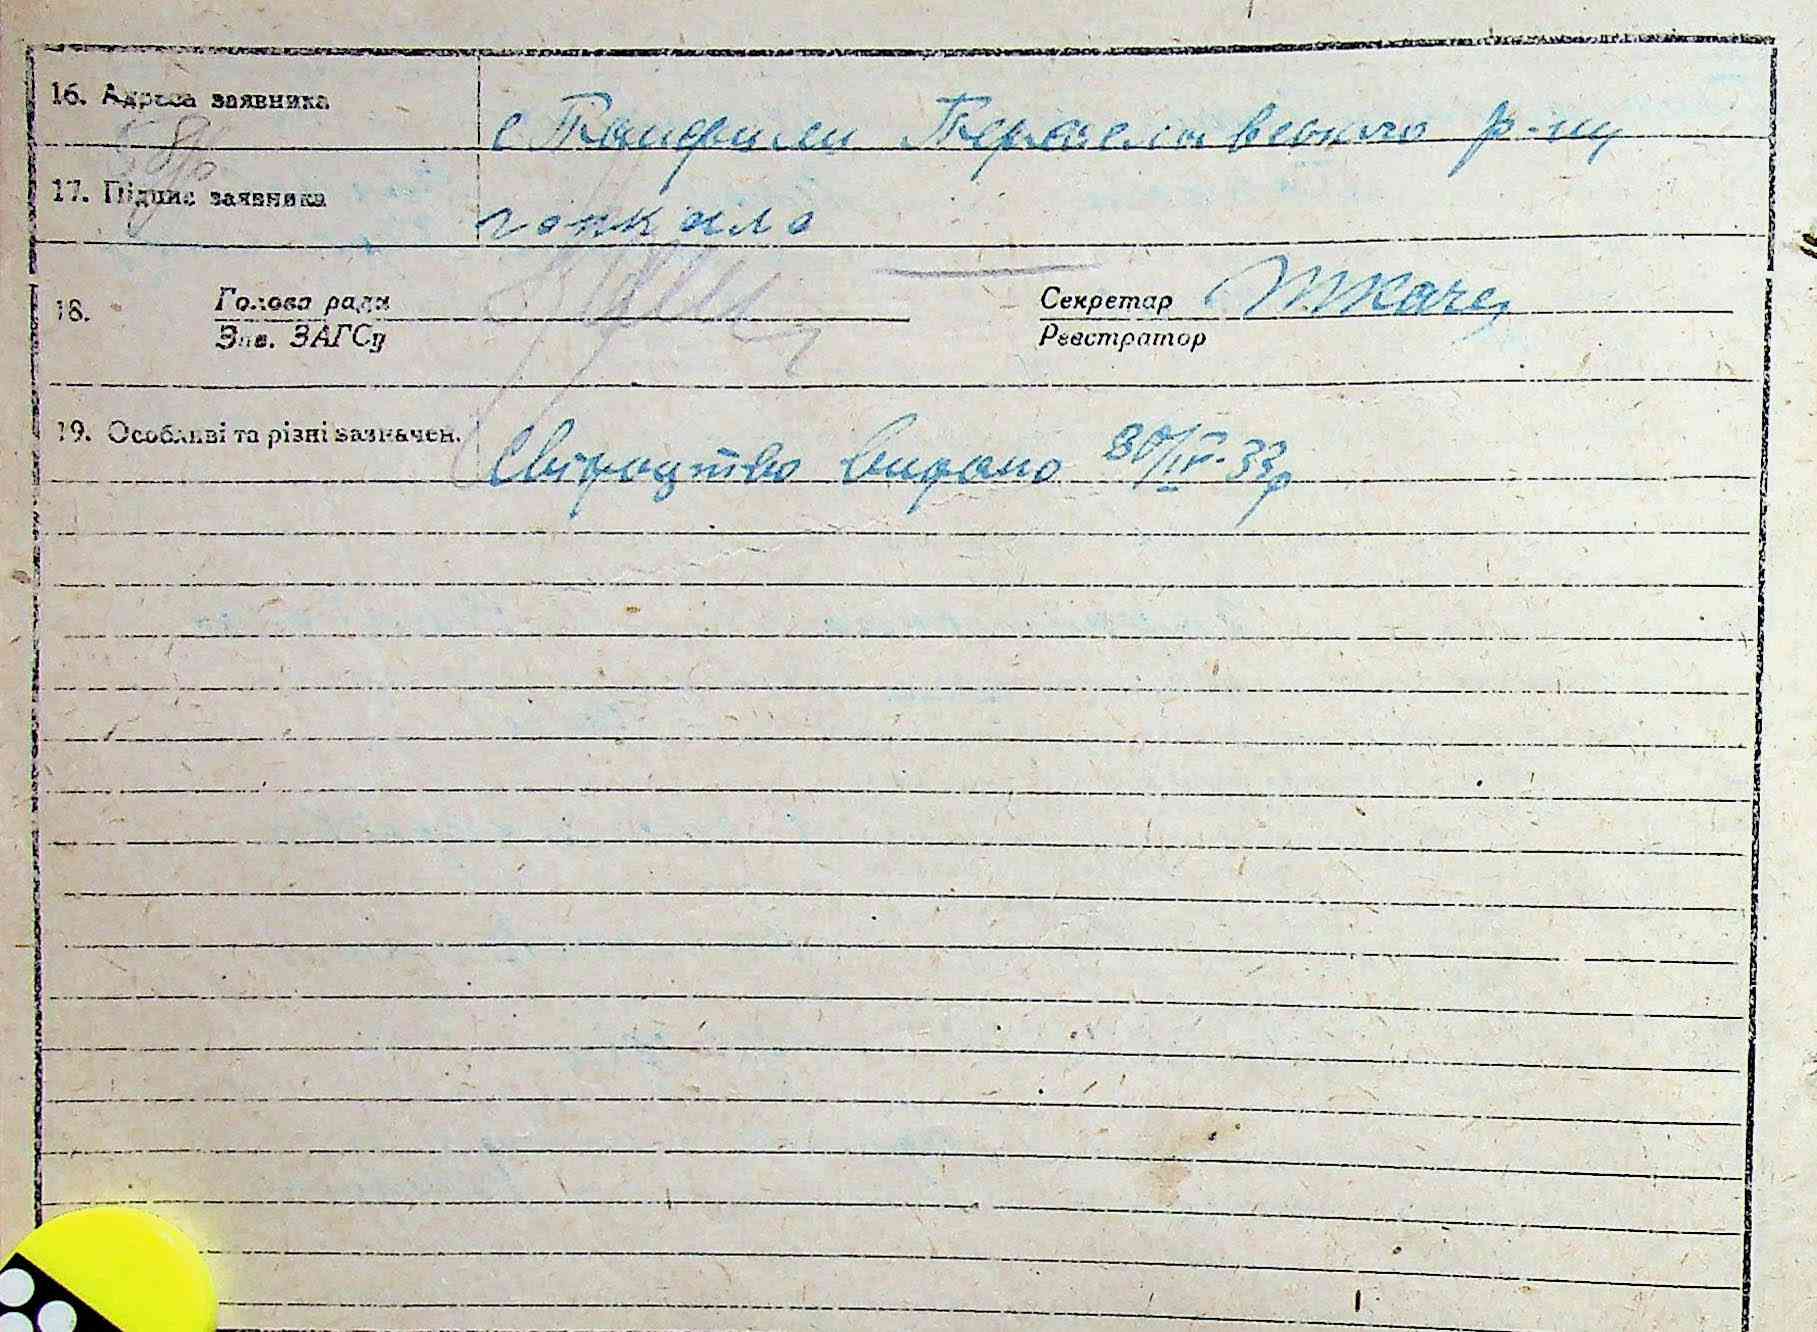 16. Адреса заявника с Панфили Переяславського р-ну
17. Підпис заявника
18. Голова ради Секретар Ткач
Зав. ЗАГСу Реєстратор
19. Особливі та різні зазначен. Свідоцтво видано 30/IV-33р